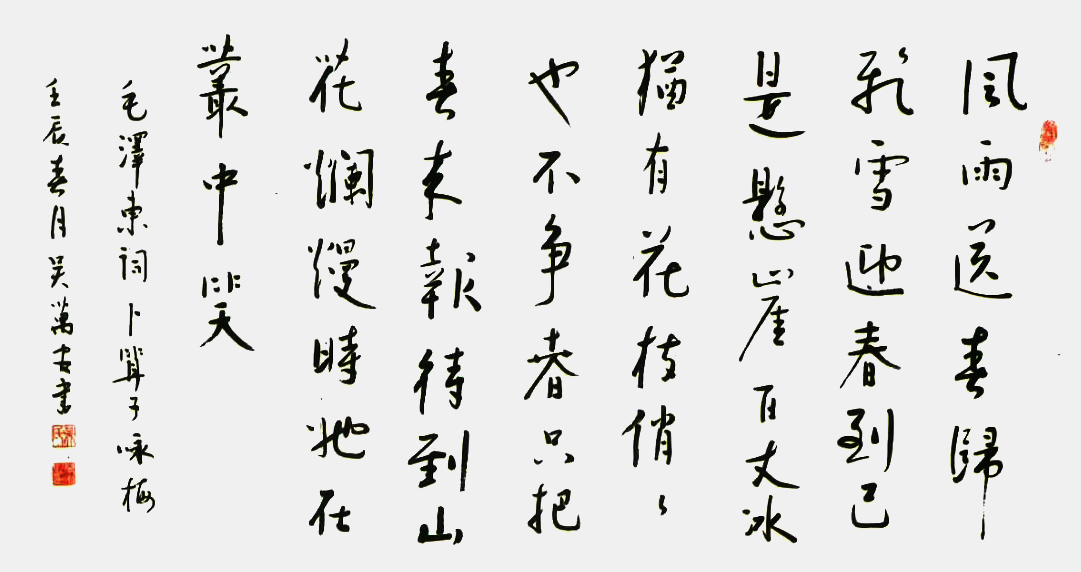 風雨送春歸
飛雪迎春到已
是懸崖百丈冰
猶有花枝俏〻
也不争春只把
春来報待到山
花爛熳時她在
叢中笑
毛澤東詞卜算子咏梅
壬辰春月吴萬古書